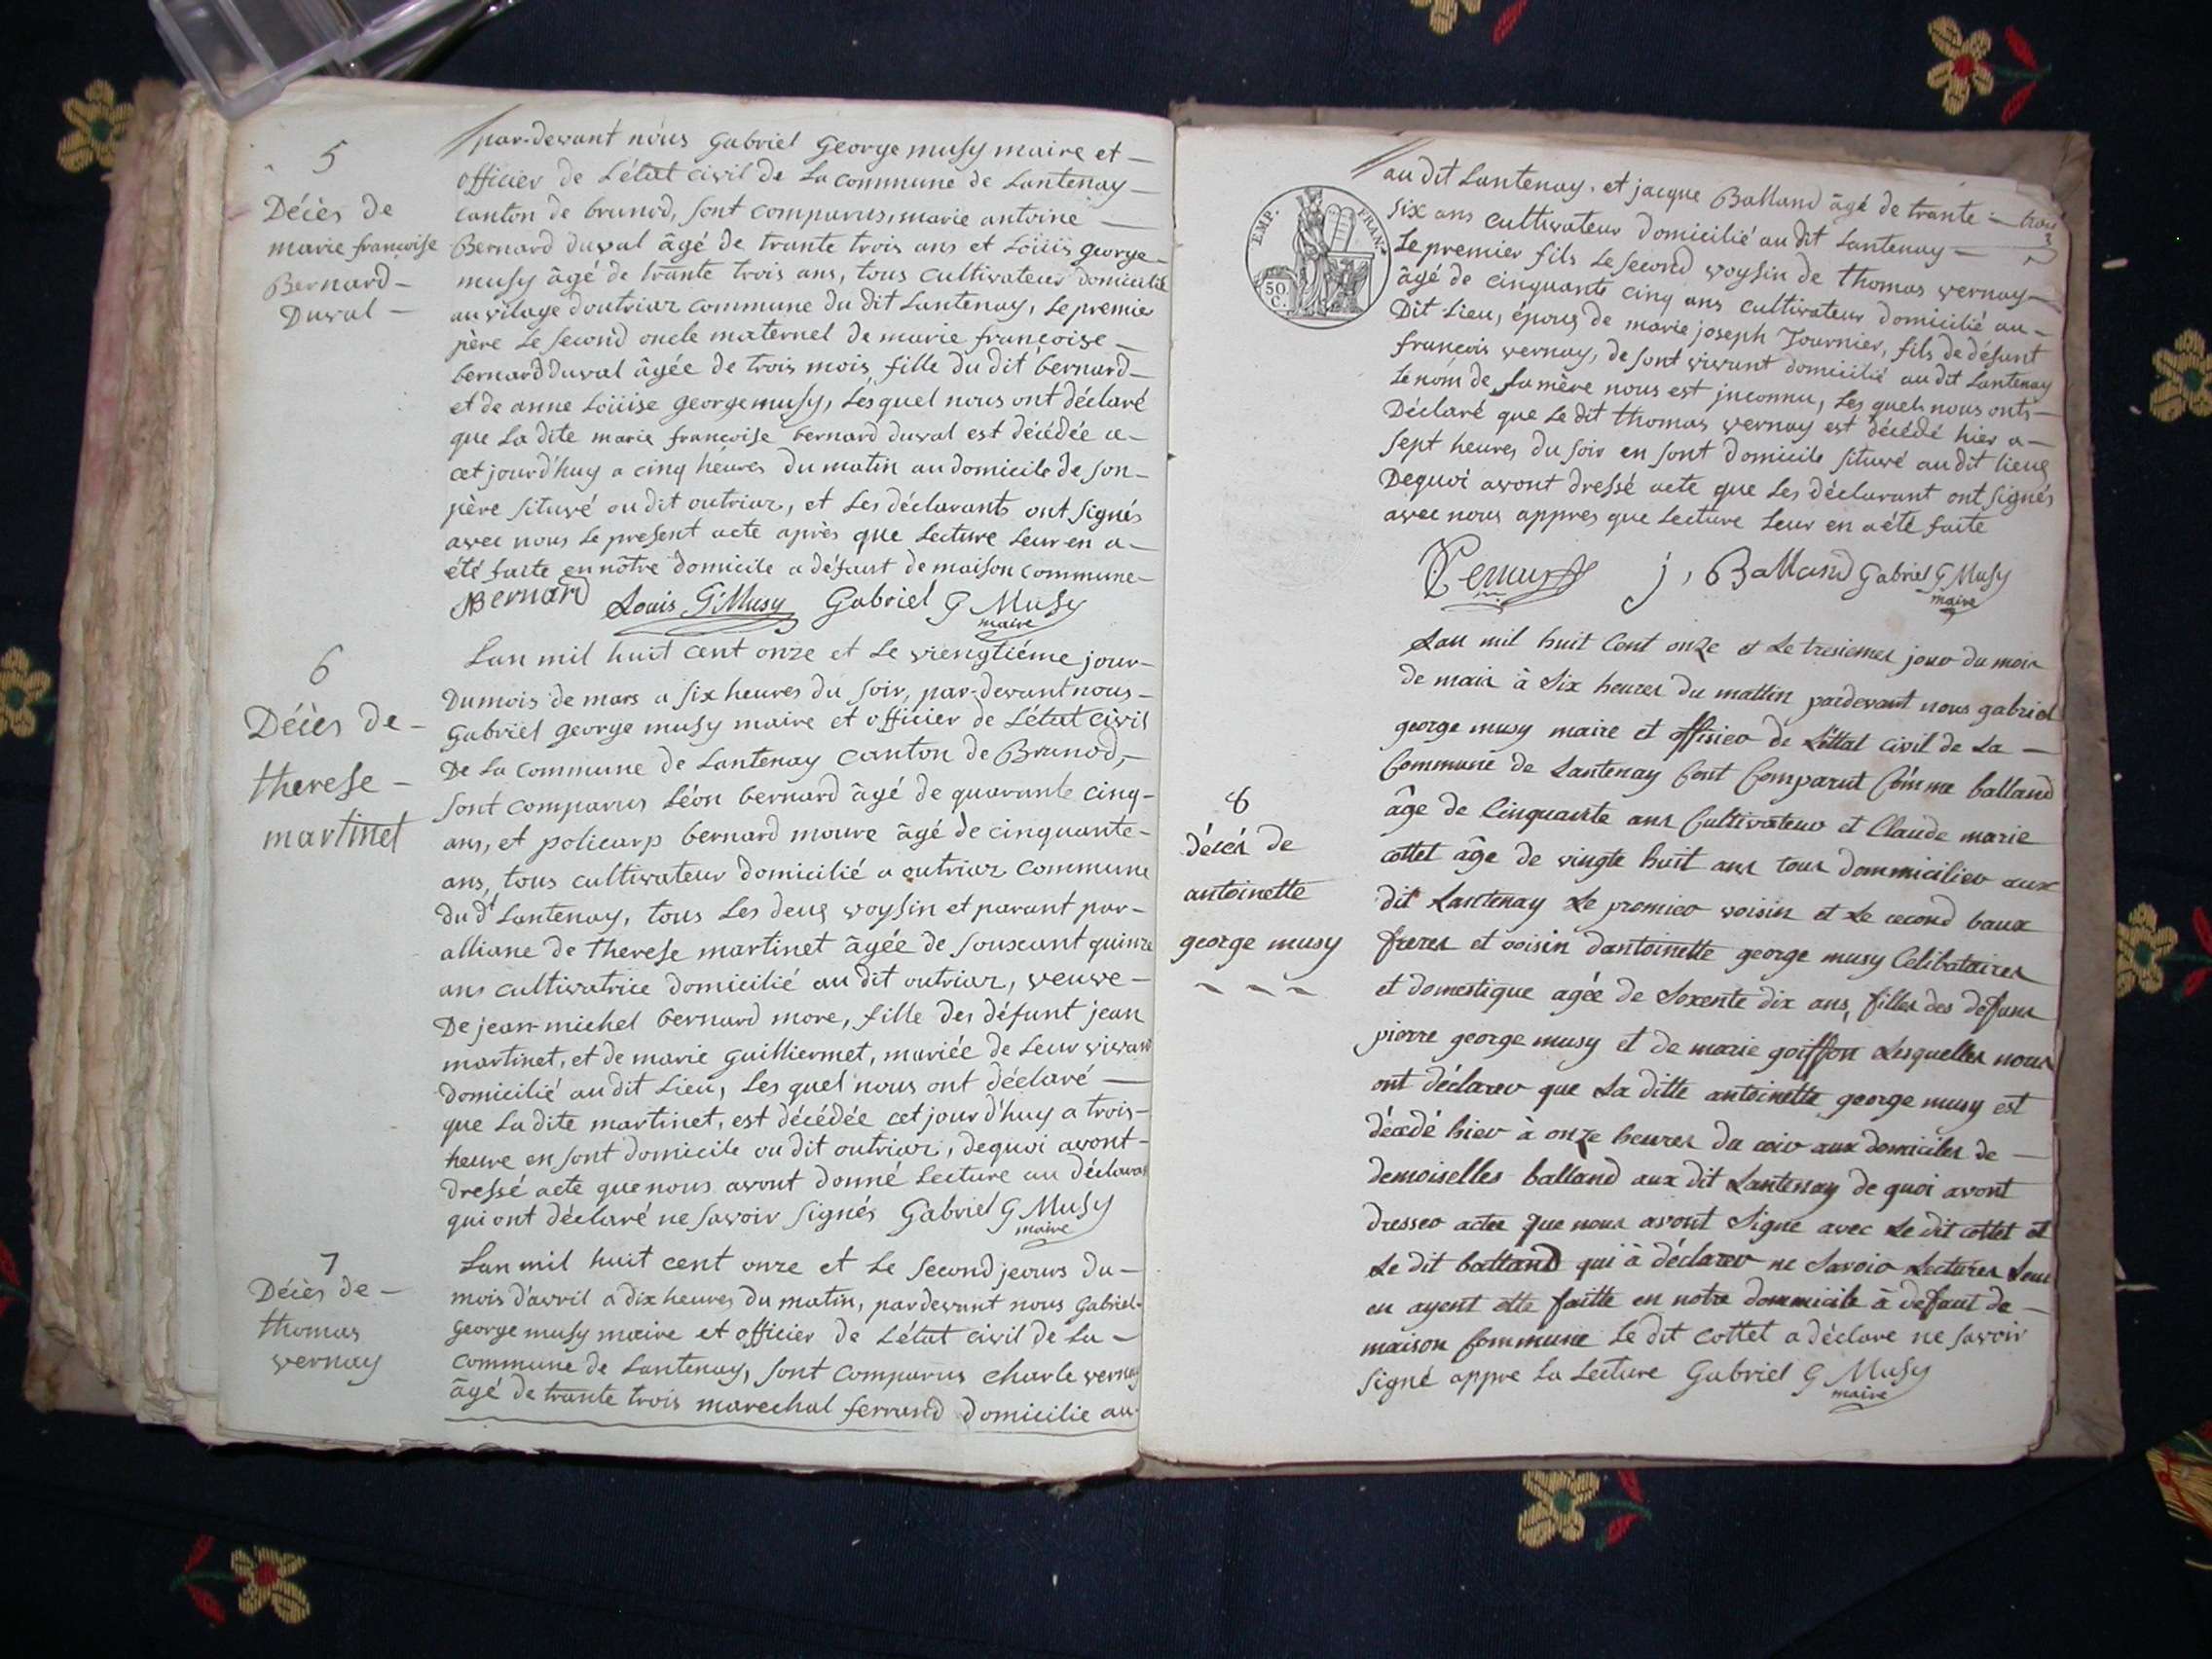 5
Décès de
marie françoise
Bernard-
Duval-
par-devant nous Gabriel George musy maire et-
officier de L'état civil de La commune de Lantenay-
canton de brunod, sont comparus, marie antoine-
Bernard duval âgé de trante trois ans et Loüis george-
musy âgé de trante trois ans, tous cultivateur domicilié
au vilage doutriaz commune du dit Lantenay, Le premie
père Le second oncle maternel de marie françoise-
bernard duval âgée de trois mois, fille du dit bernard-
et de anne Loüise george musy, Lesquel nous ont déclaré
que La dite marie françoise bernard duval est décédée a-
cet jourd'huy a cinq heures du matin au domicile de son-
père situvé au dit outriaz, et Les déclarants ont signés
avec nous Le present acte après que Lecture Leur en a-
été faite en nôtre domicile a défaut de maison commune-
Bernard Louis G Musy Gabriel G Musy
maire
6
Décès de-
therese-
martinet
Lan mil huit cent onze et Le viengtiéme jour-
Du mois de mars a six heures du soir, par-devant nous-
Gabriel george musy maire et officier de L'état civil
De La commune de Lantenay canton de Brunod,-
sont comparus Léon bernard âgé de quarante cinq-
ans, et policarp bernard moure âgé de cinquante-
ans, tous cultivateur domicilié a outriaz commune
du dt Lantenay, tous Les deug voysin et parant par-
alliane de therese martinet âgée de souxant quinze
ans cultivatrice domicilié au dit outriaz, veuve-
De jean-michel bernard more, fille des défunt jean
martinet, et de marie guilliermet, mariée de Leur vivan
domicilié au dit Lieu, Les quel nous ont déclaré-
que La dite martinet, est décédée cet jour d'huy a trois-
heure en sont domicile au dit outriaz, dequoi avont-
dressé acte que nous avont donné Lecture au déclaran
qui ont déclaré ne savoir signés Gabriel G Musy
maire
7
Décès de-
thomas
vernay
Lan mil huit cent onze et Le second jeours du-
mois d'avril a dix heures du matin, pardevant nous Gabriel-
George musy maire et officier de L'état civil de La-
commune de Lantenay, sont comparus charle vernay
âgé de trante trois marechal ferrand domicilie au-
EMP. FRAN.
50
C.
au dit Lantenay, et jacque Balland âgé de trante-
six ans cultivateur domicilié au dit Lantenay-
Le premier fils Le second voysin de thomas vernay-
âgé de cinquante cinq ans cultivateur domicilié au-
Dit Lieu, époug de marie joseph Tournier, fils de défunt
françois vernay, de sont vivant domicilié au dit Lantenay
Le nom de sa mère nous est jnconnu, Les quels nous onts-
Déclaré que Le dit thomas vernay est décédé hier a-
sept heures du soir en sont domicile situvé au dit lieug
Dequoi avont dressé acte que Les déclarant ont signés
avec nous appres que Lecture Leur en a été faite
Vernay j, Balland Gabriel G Musy
maire
8
décés de
antoinette
george musy
Lan mil huit Cent onze et Le tresiemes jour du mois
de mais à Six heures du mattin pardevant nous gabriel
george musy maire et offisier de L'éttat civil de La-
Commune de Lantenay Sont Comparut Cómme balland
âge de Cinquante ans Cultivateur et Claude marie
cottet âge de vingte huit ans tous dommicilier aux
dit Lantenay Le premier voisin et Le cecond baux
freres et voisin dantoinette george musy Celibataires
et domestique agée de Soxente dix ans, filles des defuns
pierre george musy et de marie goiffon Lesquelles nous
ont déclarer que La ditte antoinette george musy est
décédé hier à onze heures du coir aux domiciles de-
demoiselles balland aux dit Lantenay de quoi avont
dresser actee que nous avont Signe avec Le dit cottet et
Le dit balland qui à déclarer ne Savoir Lectures Leur
en ayent ette faitte en notre dommicile à defaut de-
maison Commune Le dit cottet a déclare ne savoir
signé appre La Lecture Gabriel G Musy
maire